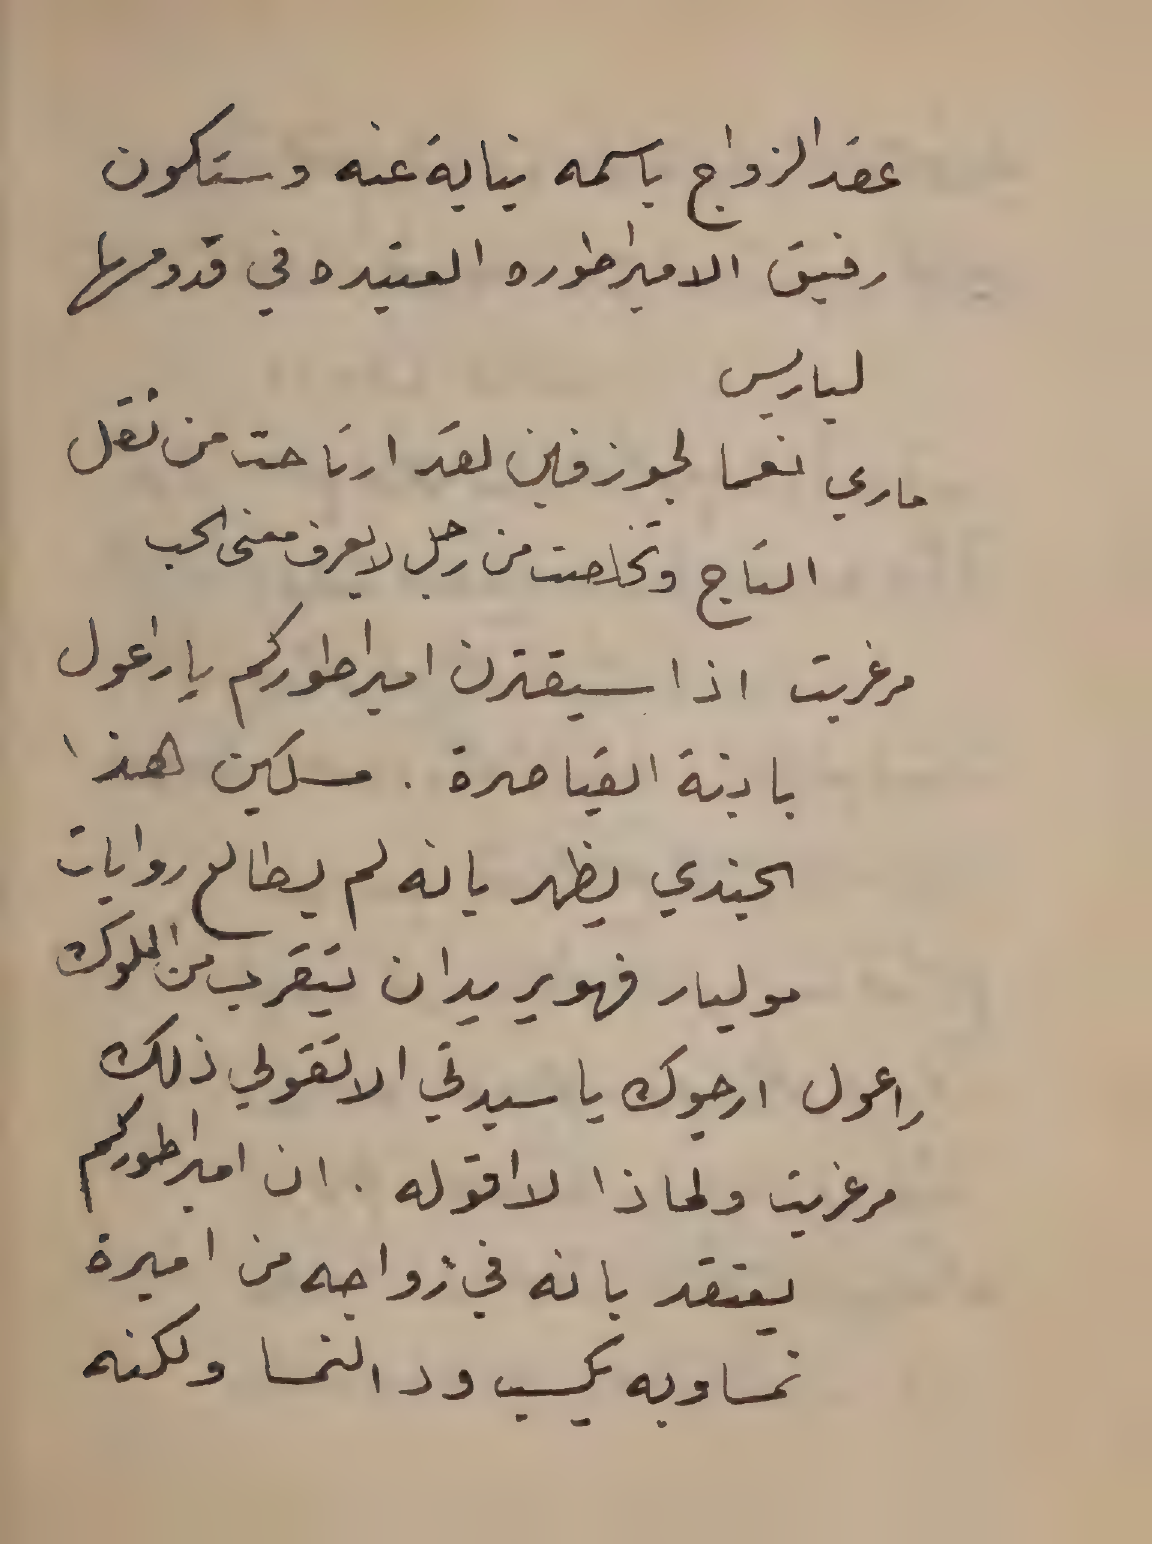 عقد الزواج باسمه بنيابة عنه وستكون
رفيق الامبراطوره العتيده في قدومها
لباريس
ماري نعما لجوزفين لقد ارتاحت من ثقل
التاج وتخلصت من رجل لا يعرف معنى الحب
مرغريت اذا سيقترن امبراطوركم يا راعول
بابنة القياصرة . مسكين هذا
الجندي يظهر بانه لم يطالع روايات
موليار فهو يريد ان يتقرب من الملوك
راعول ارجوك يا سيدتي الا تقولي ذلك
مرغريت ولماذا لا اقوله . ان امبراطوركم
يعتقد بانه في زواجه من اميرة
نمساويه يكسب ود النمسا ولكنه